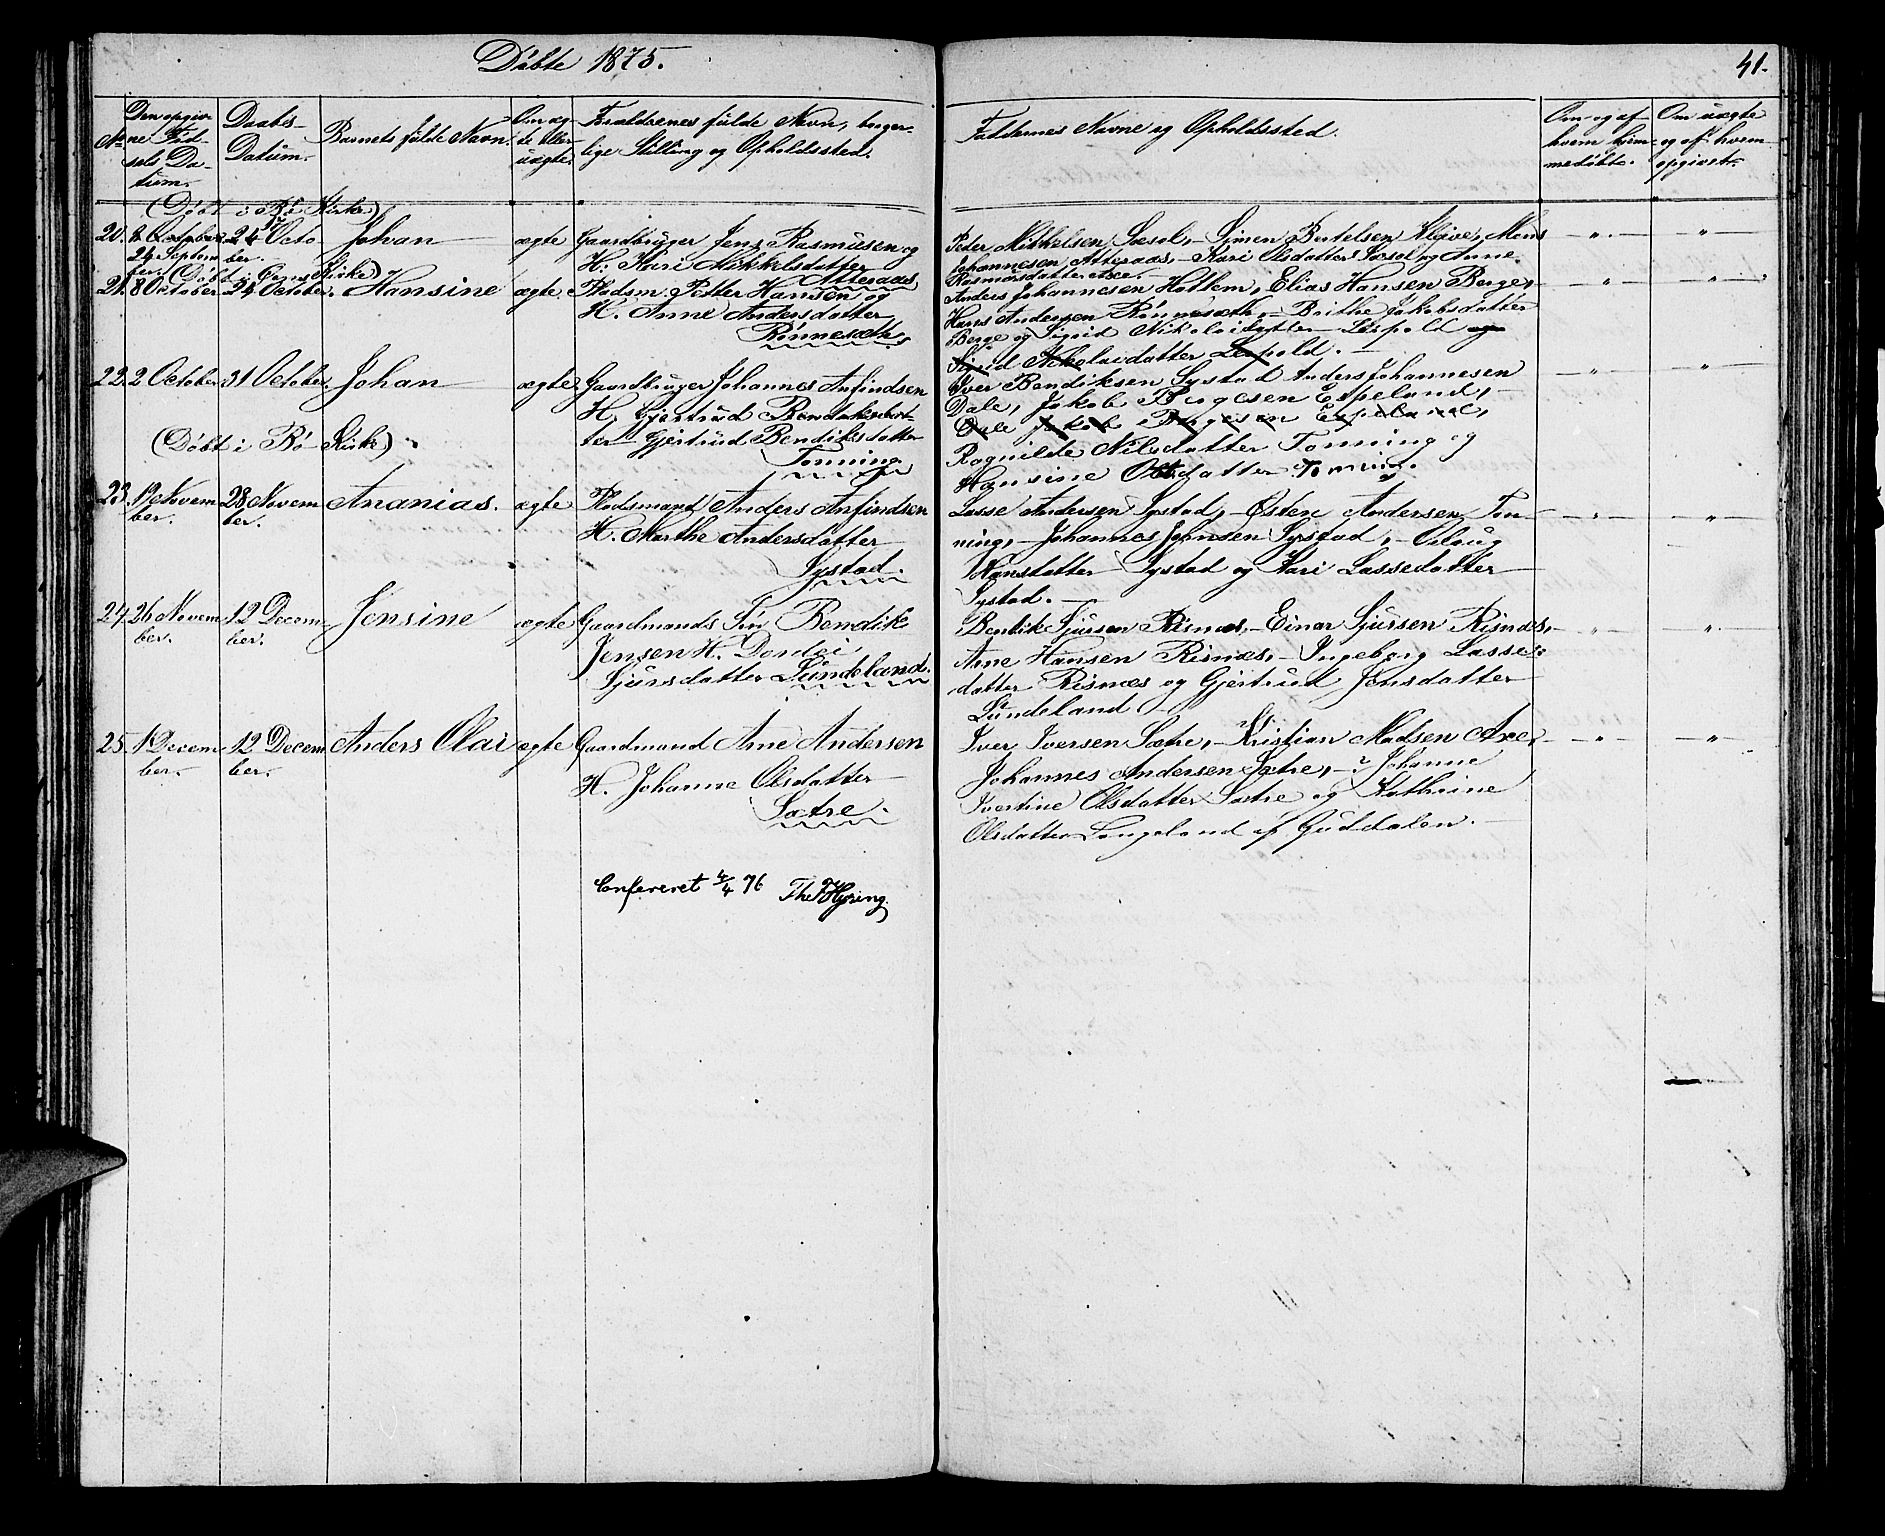 Döbte 1875.
41.
No
Den opgiv
ne Föd-
sels Da-
tum.
Daabs-
Datum.
Barnets fulde Navn.
Om æg-
te eller
uægte.
Forældrenes fulde Navn, borger-
lige Stilling og Opholdssted.
Faddernes Navne og Opholdssted.
Om og af
hvem hjem-
medöbt.
Om uægte
og af hvem
opgivet.
(Döbt i Bö Kirke)
20. 2 October 24 Octo- Johan ægte Gaardbruger Jens Rasmusen og
24 Septem ber.
ber.
H: Kari Mikkelsdatter
Atteraas
Peder Mikkelsen Sæsol, - Simen Bertelsen Kleive, Mons
Johannesen Atteraas, - Kari Olsdatter Sæsol og Anne
Rasmusdatter Axe. -
(Döbt i Kirke)
21. 8 October 24 October. Hansine ægte Pladsm. Petter Hansen og
H. Anne Andersdatter
Rönnesæth
Anders Johannesen Hatlem, Elias Hansen Berge,
Hans Andersen Rönnesæth, - Brithe Jakobsdatter
Berge og Sigrid Nikolaidatter Leipold og
Sigrid Nikolaidatter Leipold. -
22. 2 October 31 October. Johan ægte Gaardbruger Johannes Anfindsen
H. Gjertrud Bendiksdat
ter Gjertrud Bendiksdatter
Tonning.
(Döbt i Bö Kirke)
Iver Bendiksen Systad Anders Johannesen
Dale, Jakob Borgesen Espeland, -
Dale Jakob Borgesen Espeland,
Ragnilde Nilsdatter Tonning og
Hansine Olsdatter Tonning.
23. 19 Novem 28 Novem Ananias. ægte Pladsmand Anders Anfindsen
ber. ber.
H. Marthe Andersdatter
Systad.
Lasse Andersen Systad, - Østen Andersen Ton-
ning, - Johannes Jensen Systad, - Oilaug
Hansdatter Systad og Kari Lassedatter
Systad. -
24. 26 Novem 12 Decem- Jensine ægte Gaardmands Sön Bendik
ber. ber.
Jensen H. Dordei
Sjursdatter Lundeland.
Bendik Sjursen Risnæs, - Einar Sjursen Risnæs,
Arne Hansen Risnæs, - Ingeborg Lasse-
datter Risnæs og Gjertrud Jensdatter
Lundeland -
25. 1 Decem- 12 Decem Anders Olai ægte Gaardmand Arne Andersen
ber. ber.
H. Johanne Olsdatter
Sætre.
Iver Iversen Sætre, - Kristian Madsen Axe,
Johannes Andersen Sætre, - Johanne
Ivertine Olsdatter Sætre og Kathrine
Olsdatter Langeland af Guddalen. -
Confereret 4/4 76 Th. F. Hysing.